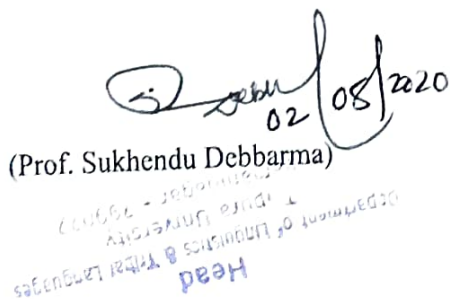 02/08/2020
(Prof. Sukhendu Debbarma)
Head
Department of Linguistics & Tribal Languages
Tripura University